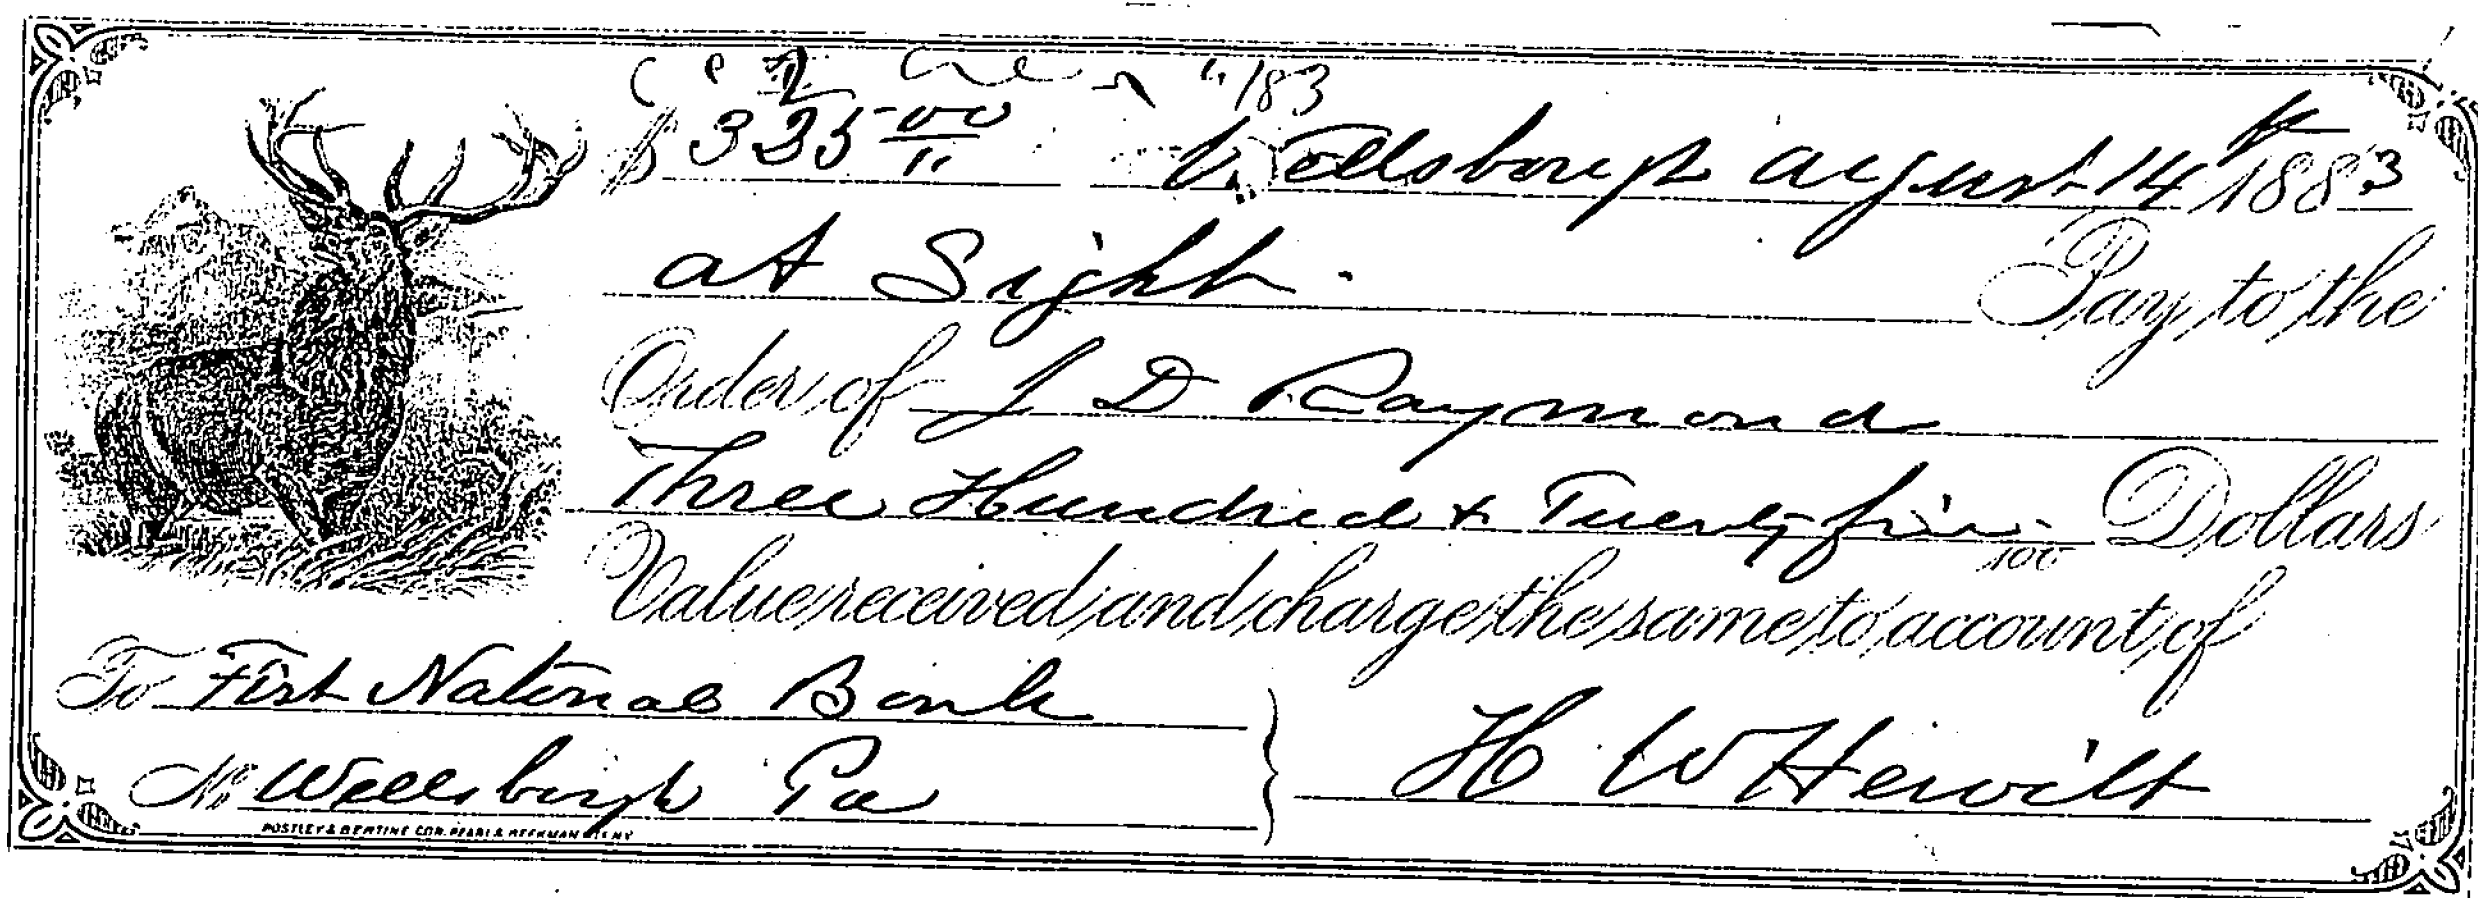 183
$ 325 00 Wellsborough August 14th 1883
at Sight Pay to the
Order of J D Raymond
Three Hundred & Twenty five 100 Dollars
Value received and charge the same to account of
To First National Bank
No Wellsborough Pa H W Hewitt
POSTLEY & BERTINE COR. PEARL & BEEKMAN STS NY